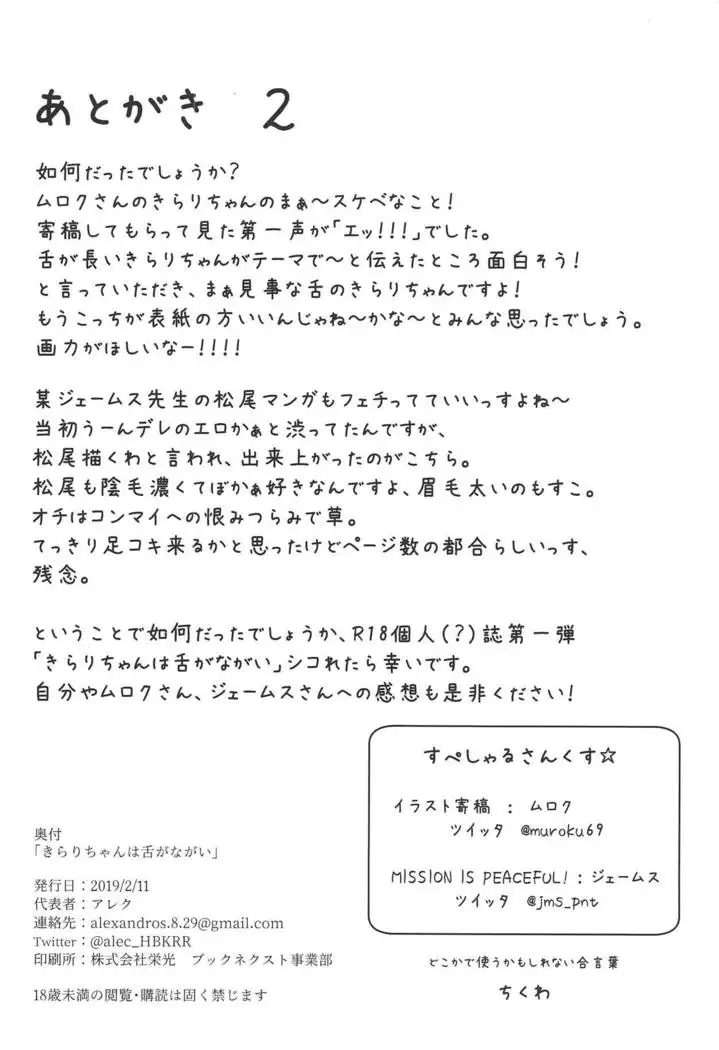 あとがき　2
如何だったでしょうか?
ムロクさんのきらりちゃんのまぁ〜スケベなこと!
寄稿してもらって見た第一声が「エッ!!!」でした。
舌が長いきらりちゃんがテーマで〜と伝えたところ面白そう!
と言っていただき、まぁ見事な舌のきらりちゃんですよ!
もうこっちが表紙の方いいんじゃね〜かな〜とみんな思ったでしょう。
画力がほしいなー!!!!
某ジェームス先生の松尾マンガもフェチってていいっすよね〜
当初うーんデレのエロかぁと渋ってたんですが、
松尾描くわと言われ、出来上がったのがこちら。
松尾も陰毛濃くてぼかぁ好きなんですよ、眉毛太いのもすこ。
オチはコンマイへの恨みつらみで草。
てっきり足コキ来るかと思ったけどページ数の都合らしいっす、
残念。
ということで如何だったでしょうか、R18個人(?)誌第一弾
「きらりちゃんは舌がながい」シコれたら幸いです。
自分やムロクさん、ジェームスさんへの感想も是非ください!
すぺしゃるさんくす☆
イラスト寄稿 : ムロク
ツイッタ @muroku69
MISSION IS PEACEFUL! : ジェームス
ツイッタ @jms_pnt
どこかで使うかもしれない合言葉
ちくわ
奥付
「きらりちゃんは舌がながい」
発行日：2019/2/11
代表者：アレク
連絡先：alexandros.8.29@gmail.com
Twitter：@alec_HBKRR
印刷所：株式会社栄光　ブックネクスト事業部
18歳未満の閲覧・購読は固く禁じます